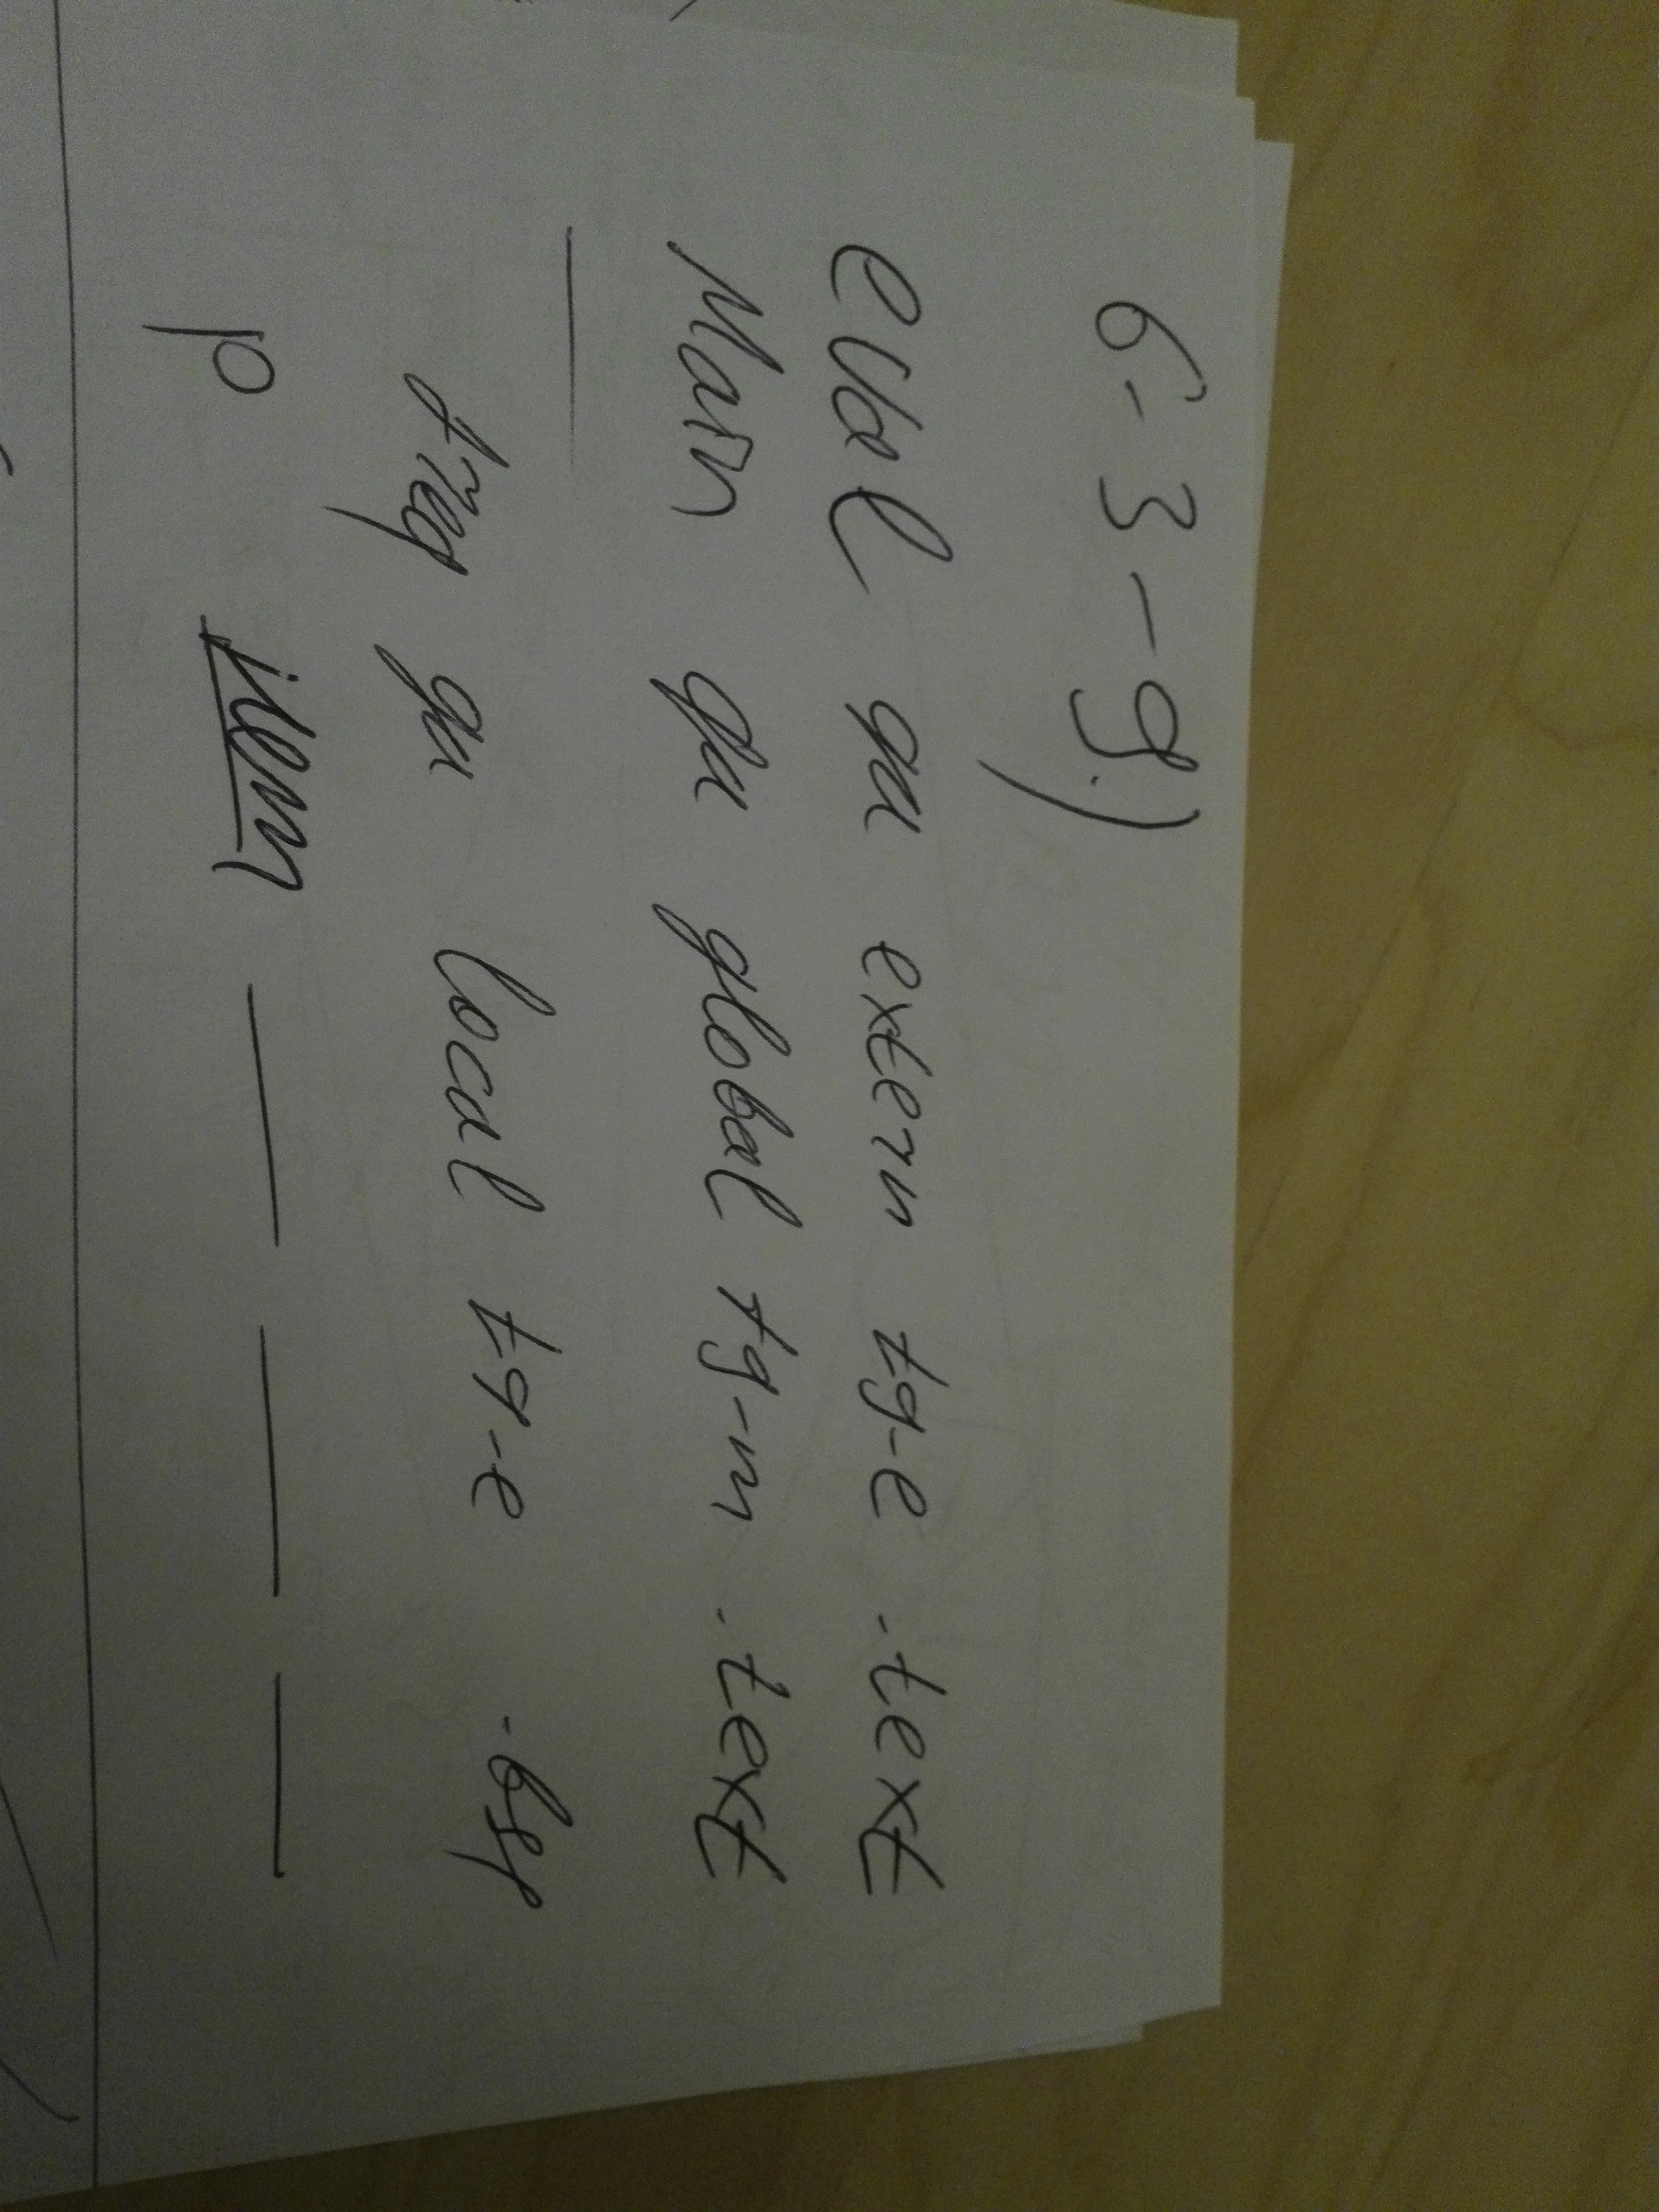 6-3-9.)
eval да extern t9-e .text
Main да global t9-m .text
—
freq да local t9-e .bss
p нет — — —